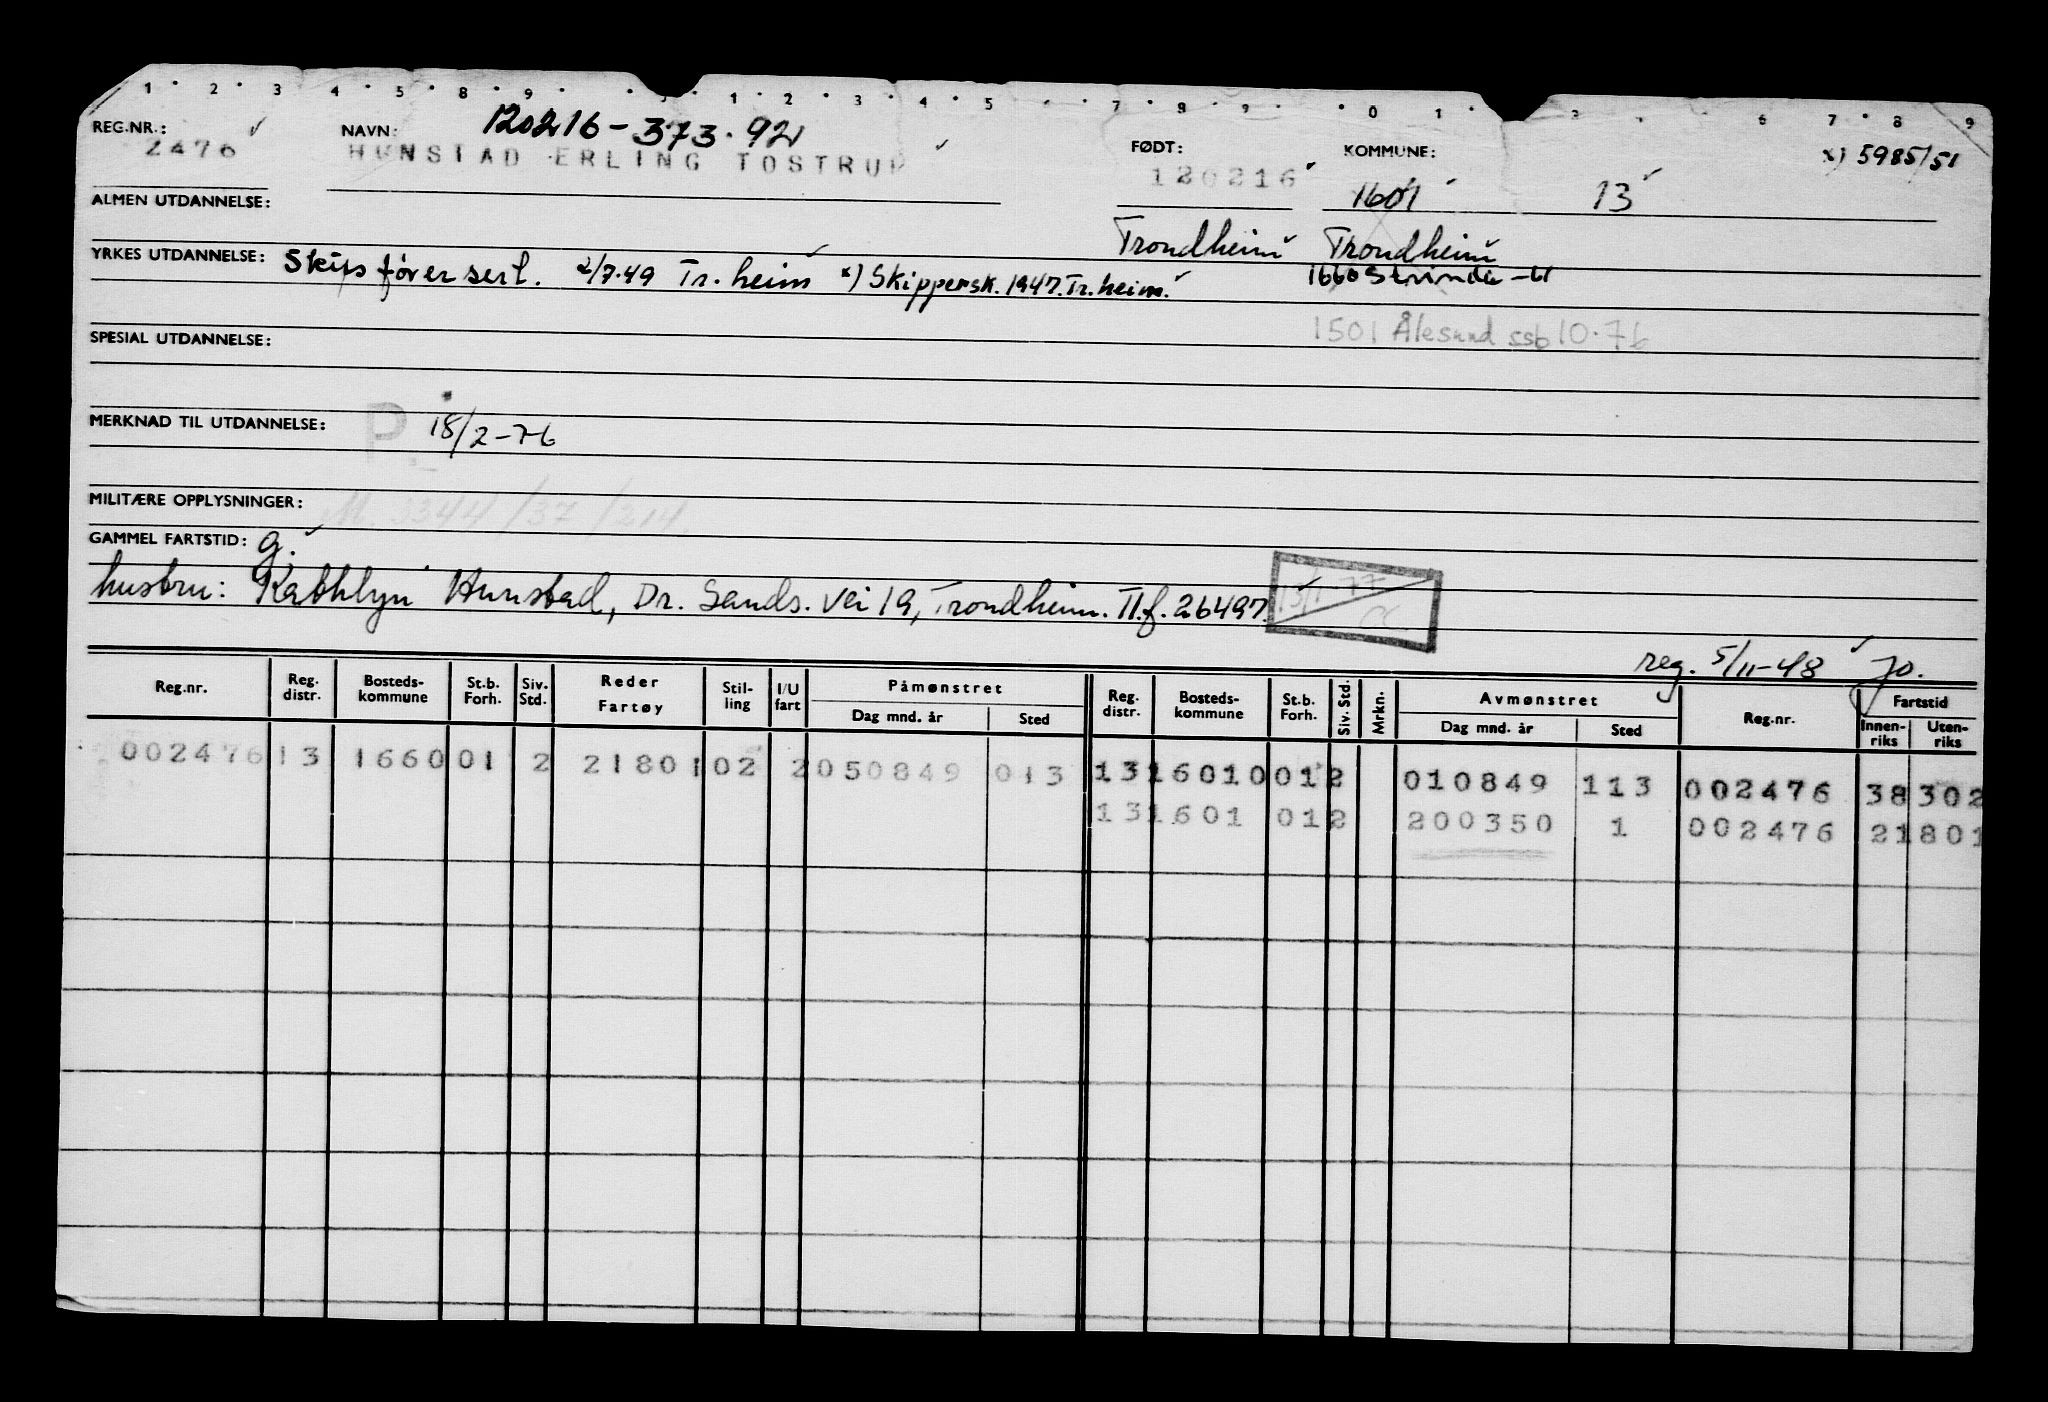 1 2 3 4 5 8 9 1 2 3 4 5 7 8 9 0 1 2 6 7 8 9
REG.NR.: NAVN: 120216-373.92 FØDT: KOMMUNE: x) 5985/51
2476 HUNSTAD ERLING TOSTRUP 120216 1601 13
ALMEN UTDANNELSE: Trondheim Trondheim
YRKES UTDANNELSE: Skipsfører sert. 2/7.49 Tr.heim x) Skippersk. 1947. Tr.heim. 1660 Strinda
SPESIAL UTDANNELSE: 1501 Ålesund ssb 10.76
MERKNAD TIL UTDANNELSE: P 18/2-76
MILITÆRE OPPLYSNINGER: M. 3344/37/214.
GAMMEL FARTSTID: g.
hustru: Kathlyn Hunstad, Dr. Sands. Vei 19, Trondheim. Tlf. 26497. 13/1-77
reg. 5/11-48 Jo.
Reg.nr. Reg. distr. Bosteds-kommune St.b. Forh. Siv. Std. Reder Fartøy Stil-ling I/U fart Påmønstret Dag mnd. år Sted Reg. distr. Bosteds-kommune St.b. Forh. Siv. Std. Mrkn. Avmønstret Dag mnd. år Sted Reg.nr. Fartstid Innen-riks Uten-riks
002476 13 1660 01 2 21801 02 2 050849 013 13 16010 01 2 010849 113 002476 38 302
13 1601 01 2 200350 1 002476 21 801